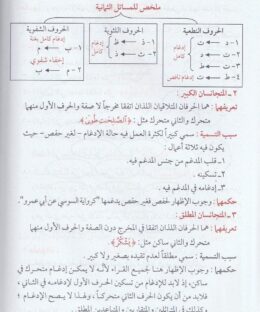 ملخص للمسائل الثمانية
الحروف النطعية
الحروف اللثوية
الحروف الشفوية
إدغام كامل بغنة
١- ب ← م
إخفاء شفوي
٢- م ← ب
١- ذ ← ظ
٢- ث ← ذ
إدغام كامل
١- د ← ت
٢- ت ← د
٣- ت ← ط
إدغام كامل
٤- ط ← ت
إدغام ناقص
٢- المتجانسان الكبير:
تعريفهما: هما الحرفان المتلاقيان اللذان اتفقا مخرجاً لا صفة والحرف الأول منهما
متحرك والثاني متحرك مثل: ﴿الصَّالِحَاتِ طُوبَى﴾.
سبب التسمية: سمي كبيراً لكثرة العمل فيه حالة الإدغام -لغير حفص- حيث
يكون فيه ثلاثة أعمال:
١- قلب المدغم من جنس المدغم فيه.
٢- تسكينه.
٣- إدغامه في المدغم فيه.
حكمها: وجوب الإظهار لحفص وغير حفص يدغمها "كرواية السوسي عن أبي عمرو".
٣- المتجانسان المطلق:
تعريفهما: هما الحرفان اللذان اتفقا في المخرج دون الصفة والحرف الأول منهما
متحرك والثاني ساكن مثل: ﴿يَشْكُرُ﴾.
سبب التسمية: سمي مطلقاً لعدم تقيده بصغير ولا كبير.
حكمها: وجوب الإظهار هنا لجميع القراء لأنه لا يمكن إدغام متحرك في
ساكن، إذ لابد للإدغام من سكون الحرف الأول لإدغامه في الثاني،
فلابد من أن يكون الحرف الثاني متحركاً، ولهذا لا يصح الإدغام
وكذلك في المتماثلين والمتقاربين والمتباعدين المطلق.